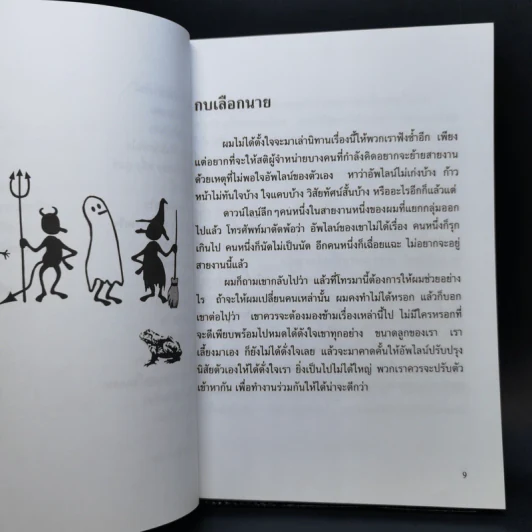 กบเลือกนาย
ผมไม่ได้ตั้งใจจะมาเล่านิทานเรื่องนี้ให้พวกเราฟังซ้ำอีก เพียง
แต่อยากที่จะให้สติผู้จำหน่ายบางคนที่กำลังคิดอยากจะย้ายสายงาน
ด้วยเหตุที่ไม่พอใจอัพไลน์ของตัวเอง หาว่าอัพไลน์ไม่เก่งบ้าง ก้าว
หน้าไม่ทันใจบ้าง ใจแคบบ้าง วิสัยทัศน์สั้นบ้าง หรืออะไรอีกก็แล้วแต่
ดาวน์ไลน์ลึก ๆคนหนึ่งในสายงานหนึ่งของผมที่แยกกลุ่มออก
ไปแล้ว โทรศัพท์มาตัดพ้อว่า อัพไลน์ของเขาไม่ได้เรื่อง คนหนึ่งก็รุก
เกินไป คนหนึ่งก็นัดไม่เป็นนัด อีกคนหนึ่งก็เฉื่อยแฉะ ไม่อยากจะอยู่
สายงานนี้แล้ว
ผมก็ถามเขากลับไปว่า แล้วที่โทรมานี้ต้องการให้ผมช่วยอย่าง
ไร ถ้าจะให้ผมเปลี่ยนคนเหล่านั้น ผมคงทำไม่ได้หรอก แล้วก็บอก
เขาต่อไปว่า เขาควรจะต้องมองข้ามเรื่องเหล่านี้ไป ไม่มีใครหรอกที่
จะดีเพียบพร้อมไปหมดได้ดังใจเขาทุกอย่าง ขนาดลูกของเรา เรา
เลี้ยงมาเอง ก็ยังไม่ได้ดั่งใจเลย แล้วจะมาคาดคั้นให้อัพไลน์ปรับปรุง
นิสัยตัวเองให้ได้ดั่งใจเรา ยิ่งเป็นไปไม่ได้ใหญ่ พวกเราควรจะปรับตัว
เข้าหากัน เพื่อทำงานร่วมกันให้ได้น่าจะดีกว่า
9